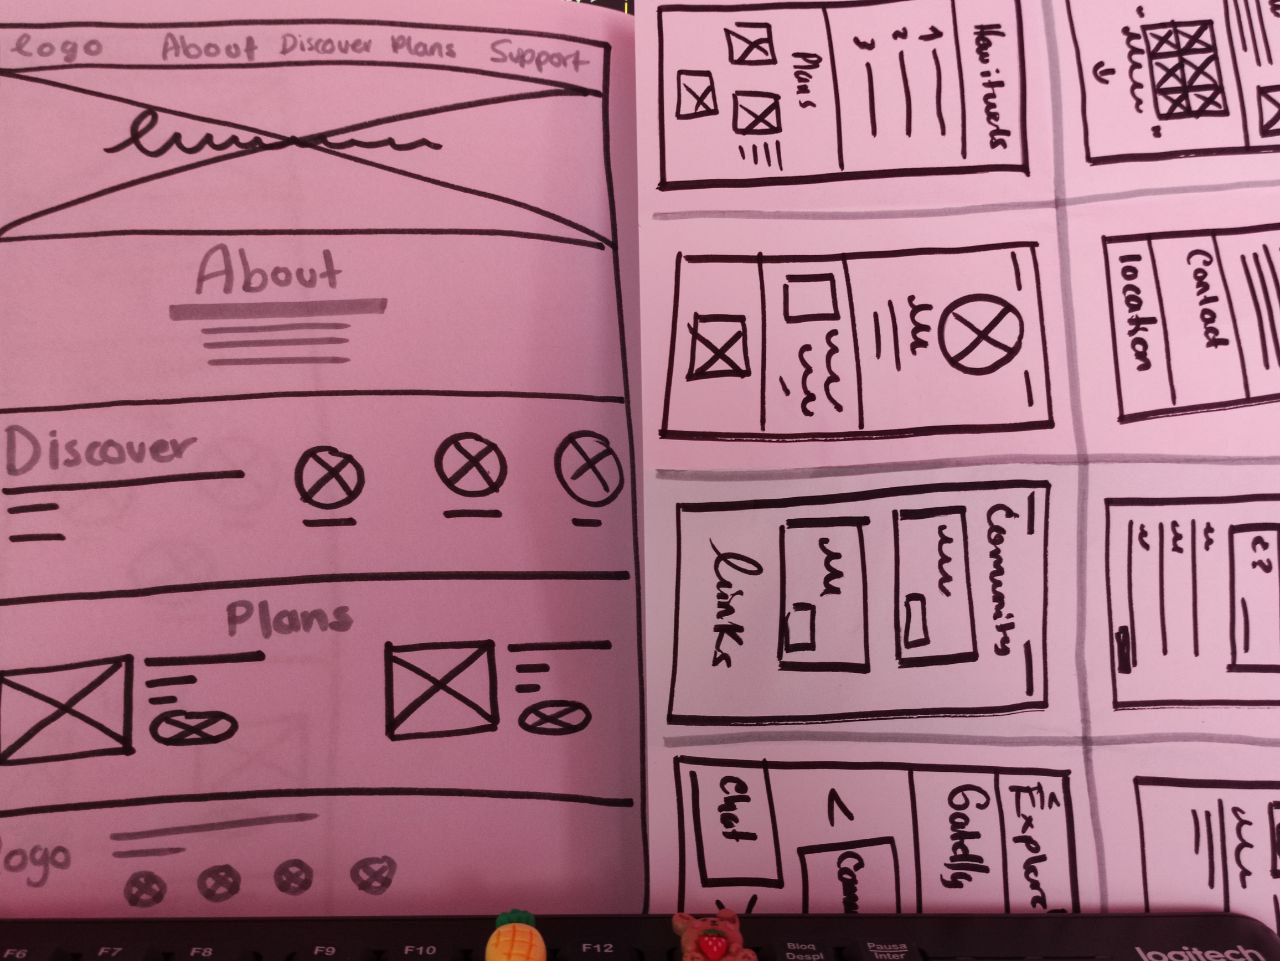 logo About Discover Plans Support
About
Discover
Plans
logo
1
2
3
Plans
Contact
location
Community
links
Explore
Chat
F6 F7 F8 F9 F10 F12 Bloq Despl Pausa Inter
logitech